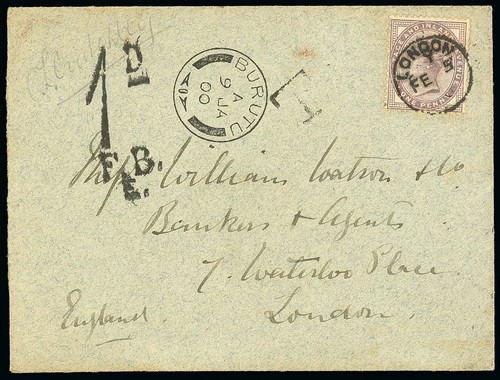 1D
F.B.
E.
BURUTU
A
9 JA
00
LONDON
FE
POSTAGE AND INLAND REVENUE
ONE PENNY
T
Messrs William Watson & Co
Bankers & Agents
7. Waterloo Place
London.
England.